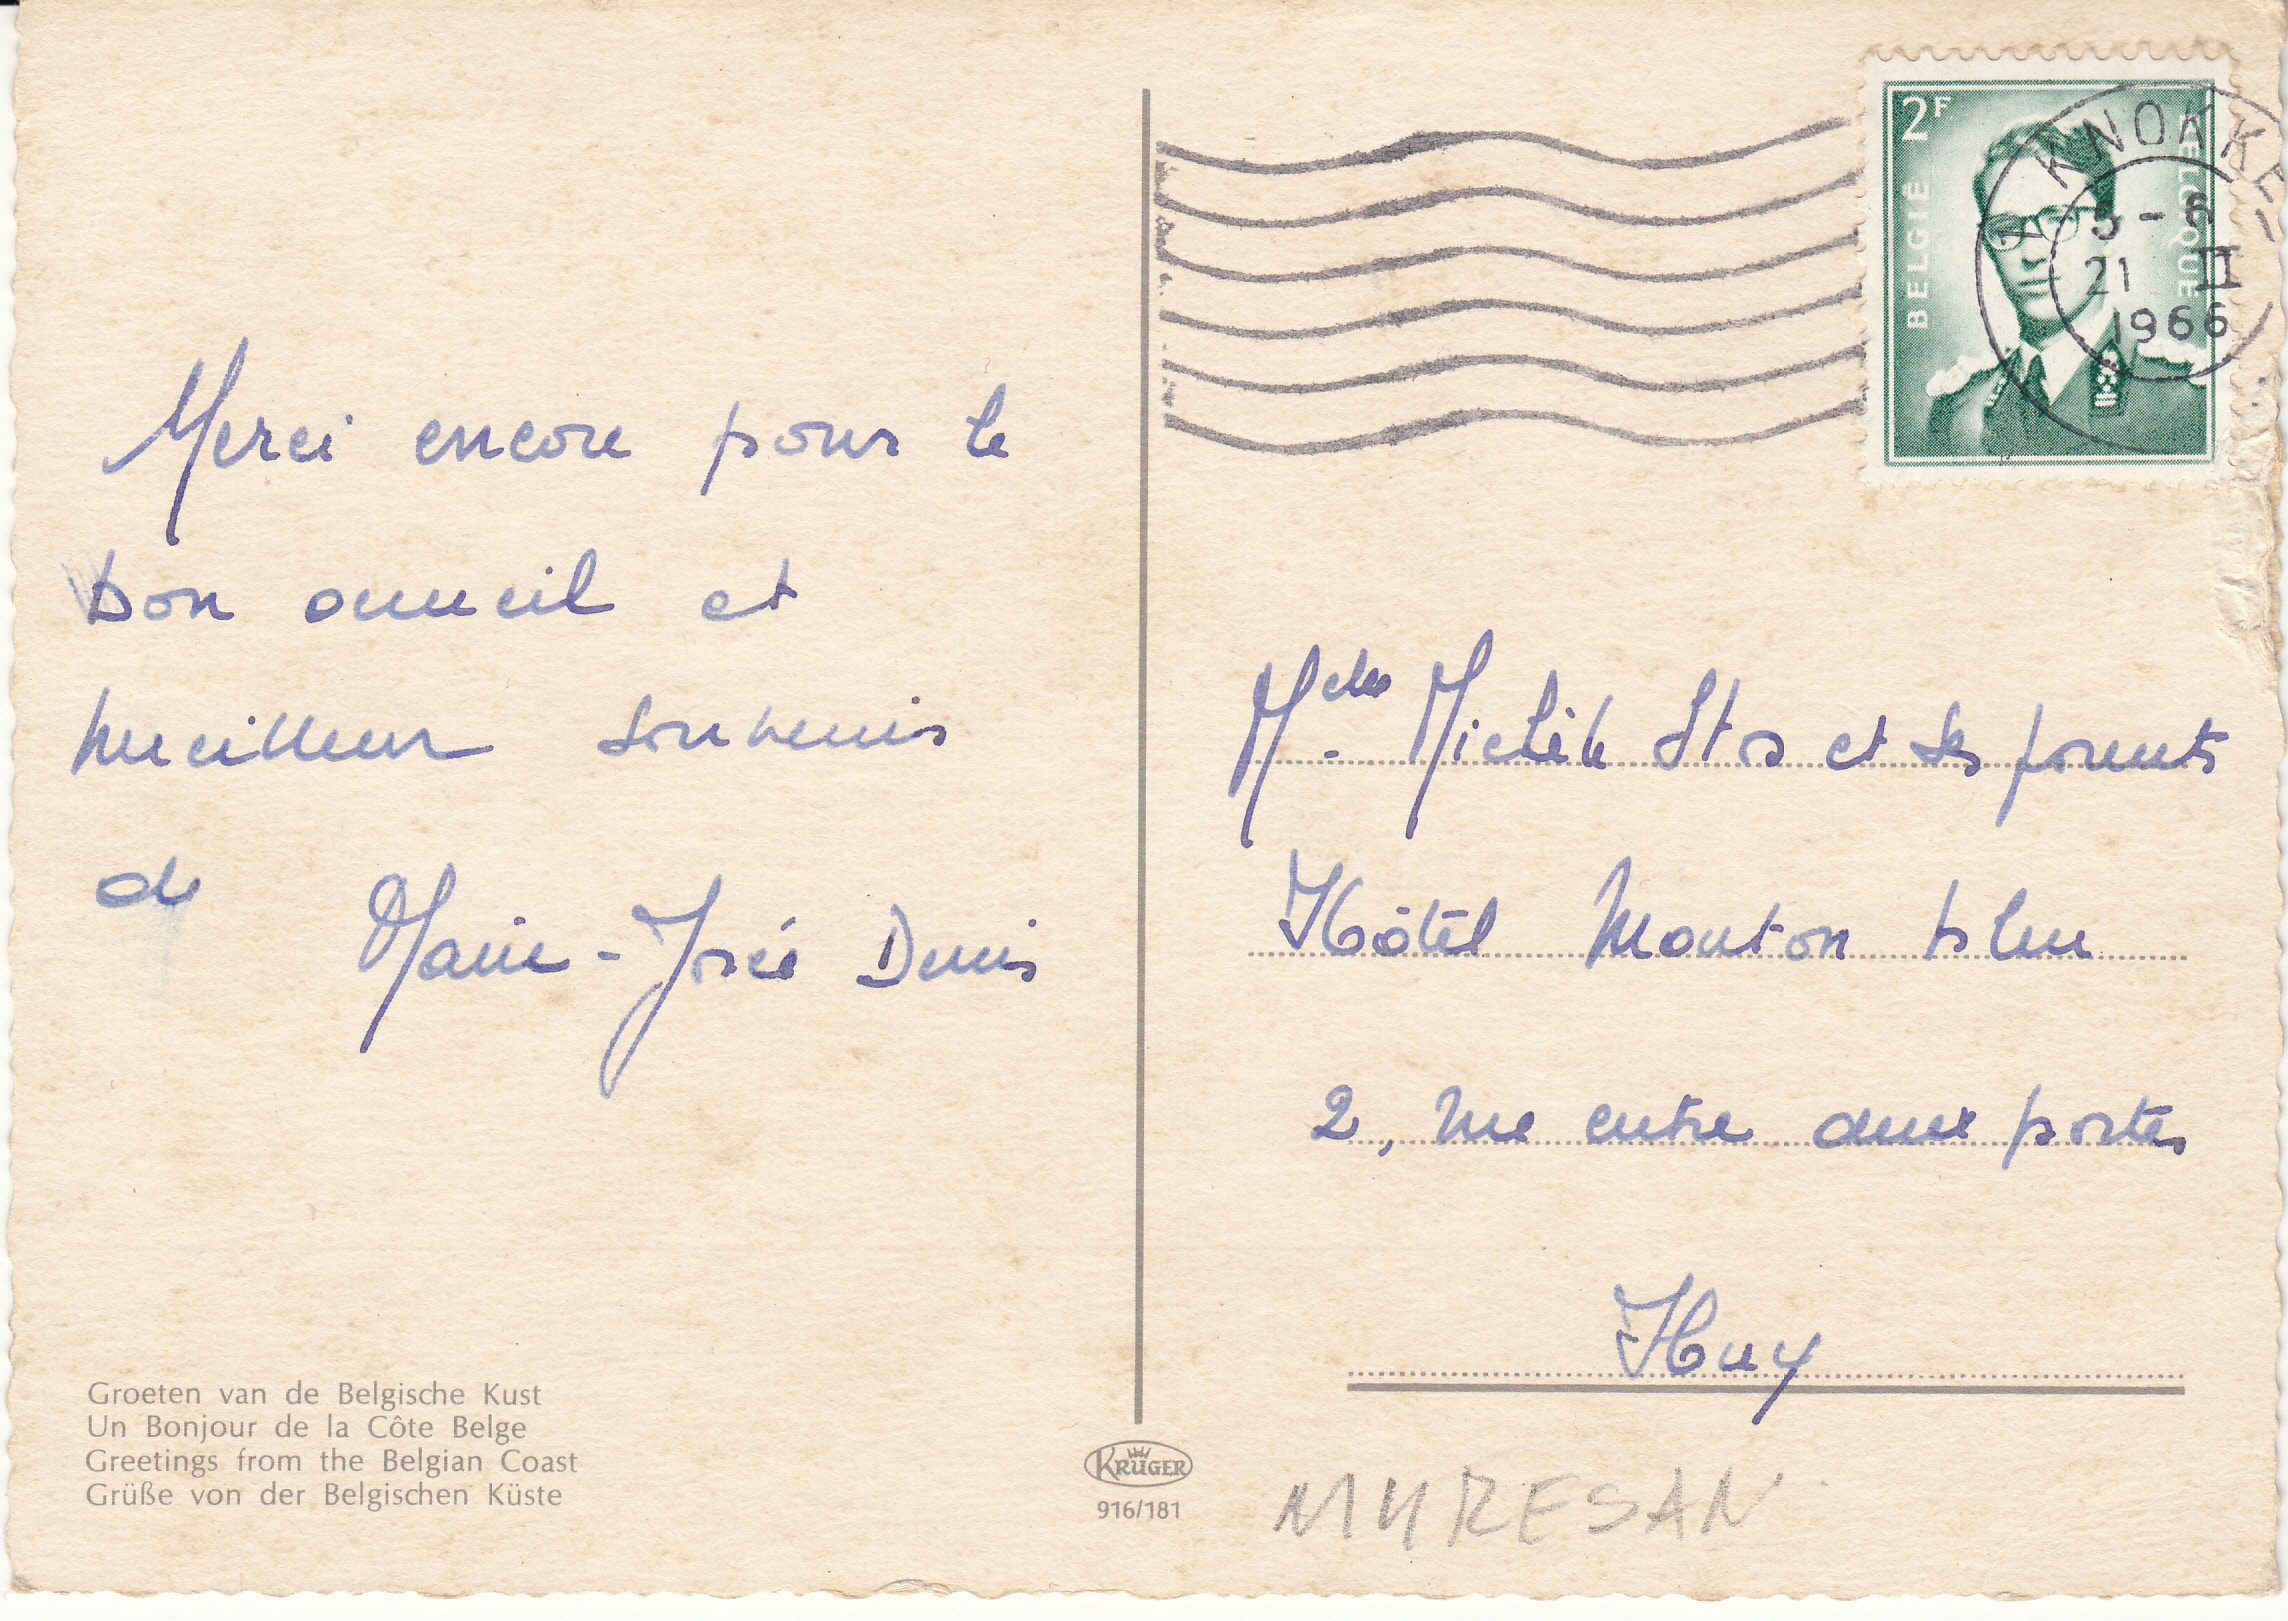 Merci encore pour le
bon accueil et
meilleur souvenir
de Marie-José Denis
Groeten van de Belgische Kust
Un Bonjour de la Côte Belge
Greetings from the Belgian Coast
Grüße von der Belgischen Küste
KRÜGER
916/181
2F
BELGIË
BELGIQUE
KNOKKE
21 II
1966
et ses parents
Hôtel Mouton bleu
2, rue entre deux portes
Huy
MURESAN